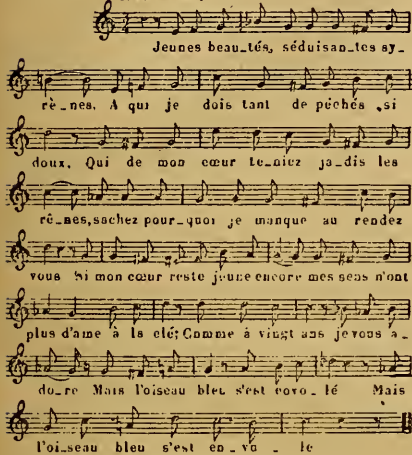 Jeunes beau_tés, séduisan_tes sy_
rè_nes, A qui je dois tant de péchés si
doux, Qui de mon cœur te_niez ja_dis les
rê_nes, sachez pour_quoi je manque au rendez
vous Si mon cœur reste jeune encore mes sens n'ont
plus d'ame à la clé; Comme à vingt ans je vous a_
do_re Mais l'oiseau bleu s'est envo_lé Mais
l'oi_seau bleu s'est en_vo_lé